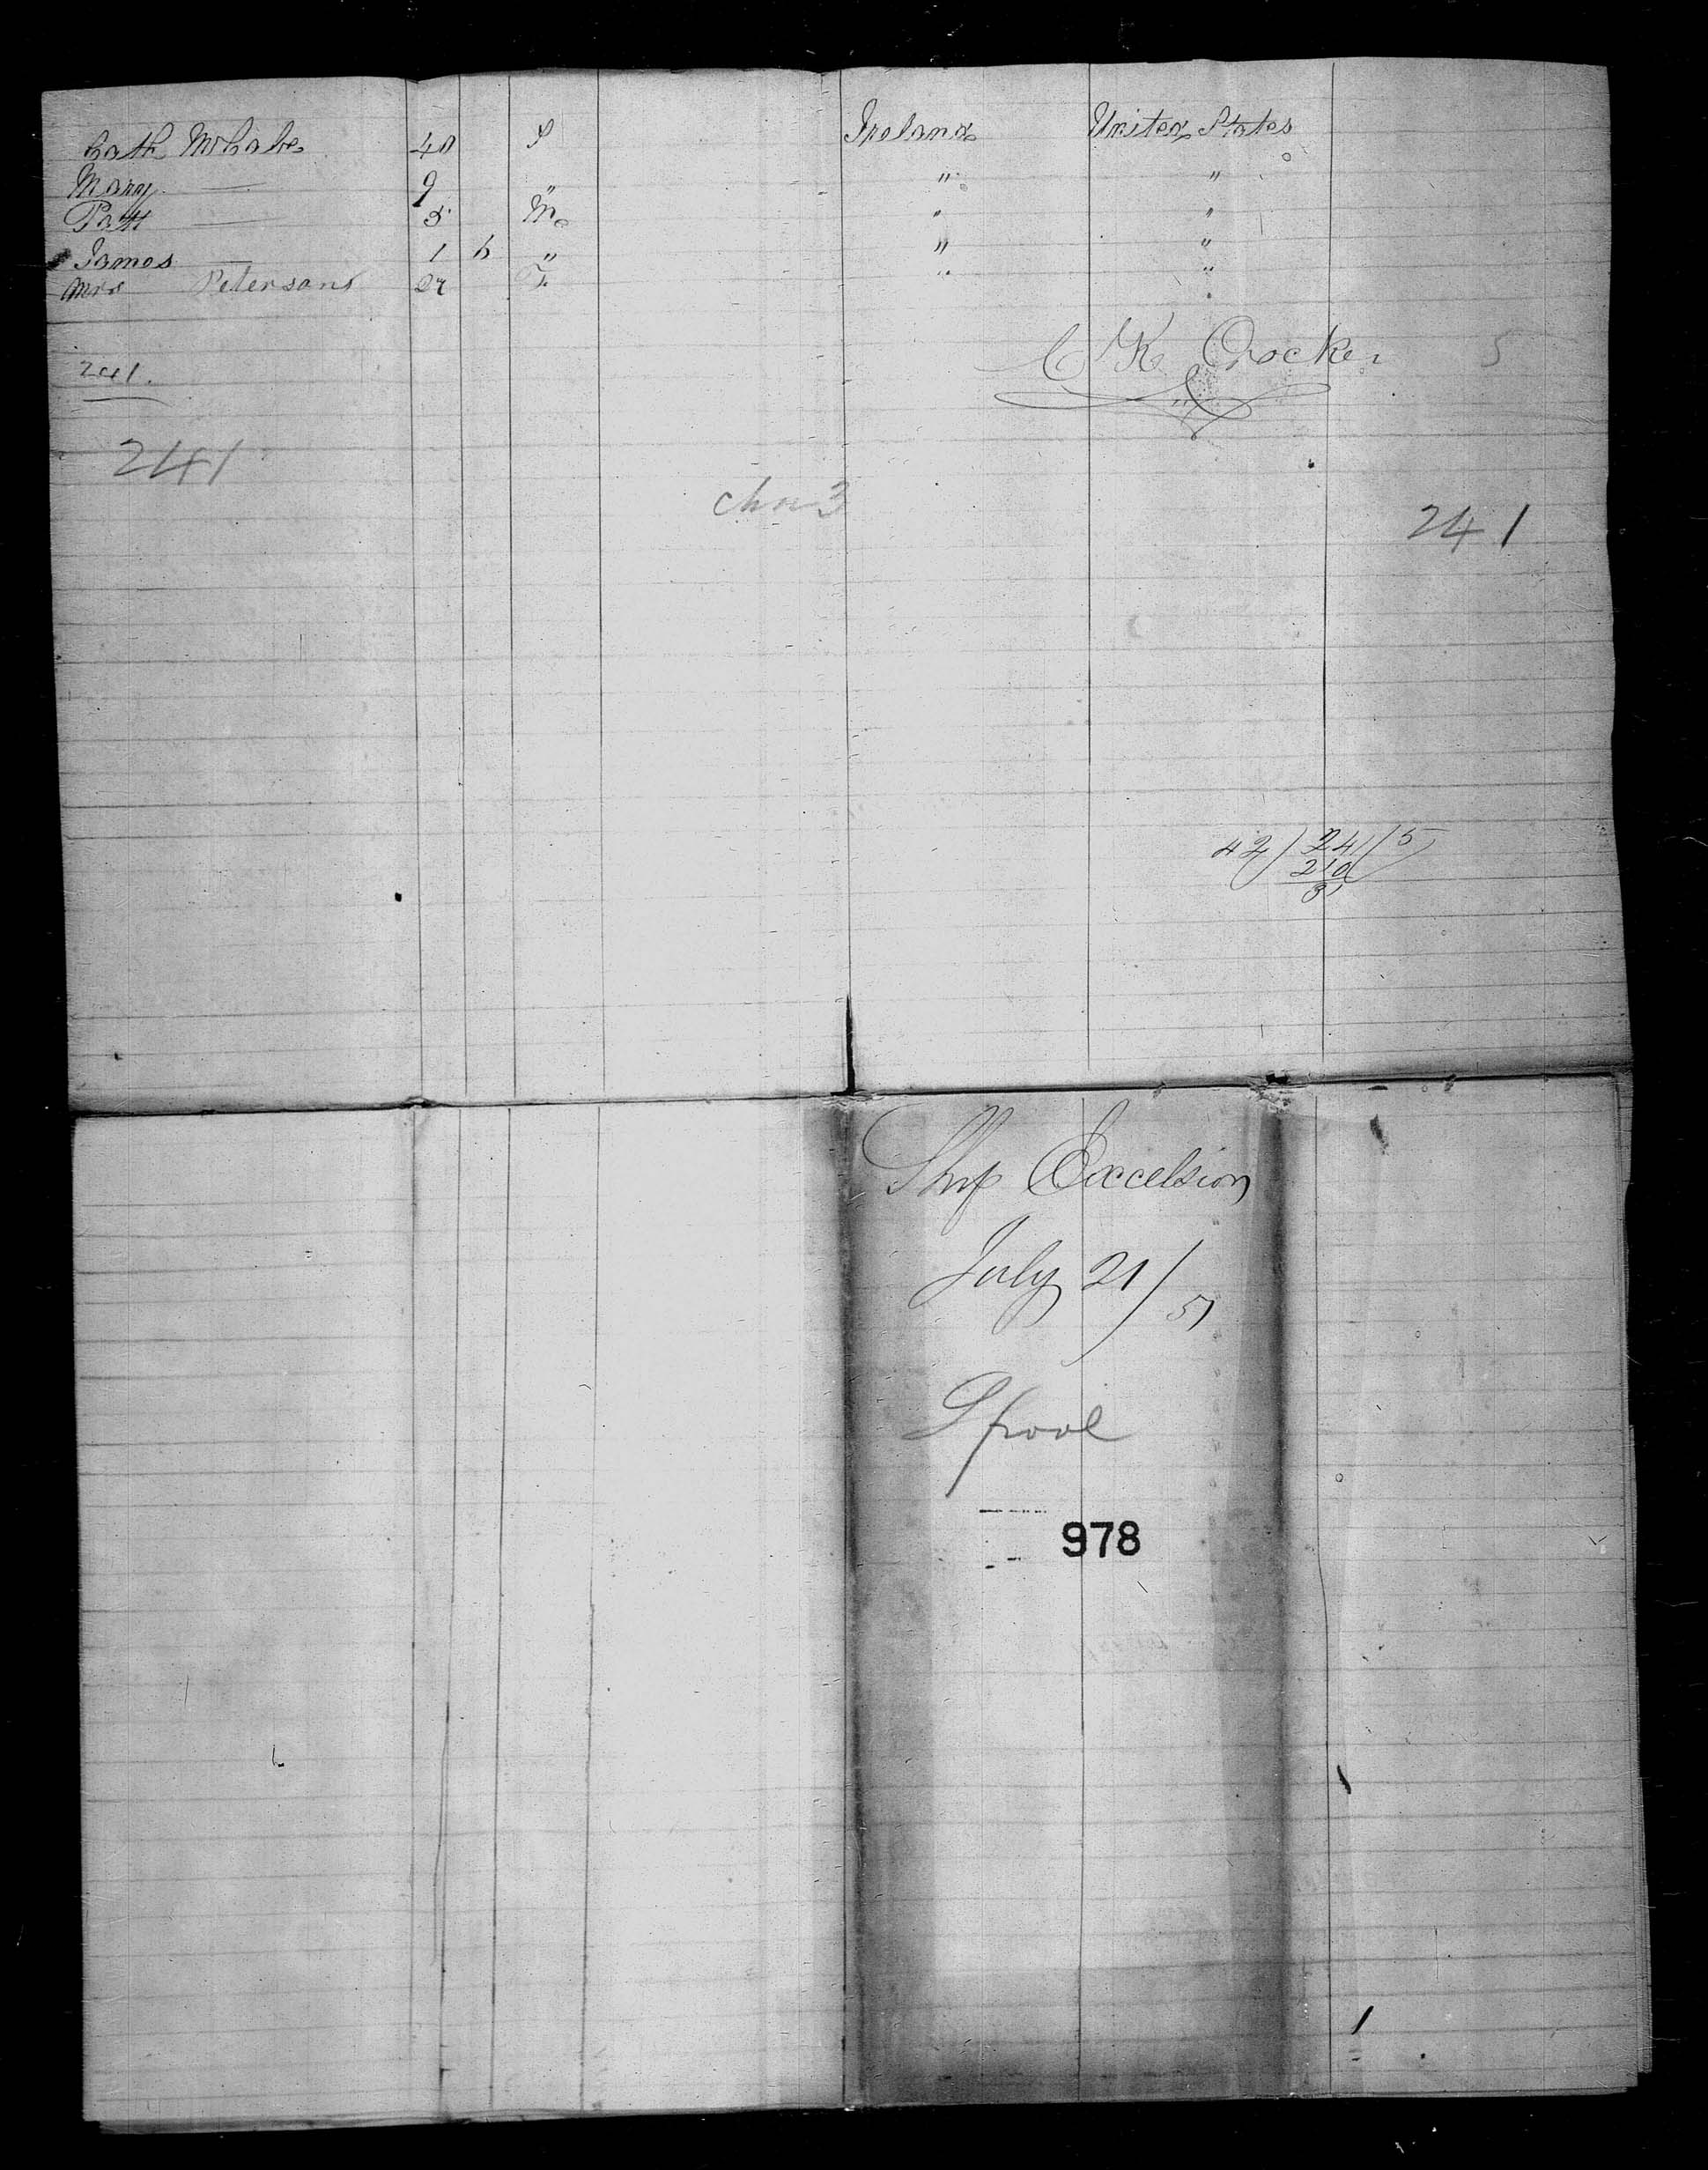 Cath McCabe 40 F Ireland United States
Mary — 9 " " "
Patk — 5 M " "
James — 1 6 " " "
Mrs Petersons 27 F. " "
C K Crocker 5
241.
241
241
42 / 241 / 5
210
31
Ship Excelsior
July 21/57
Lpool
978